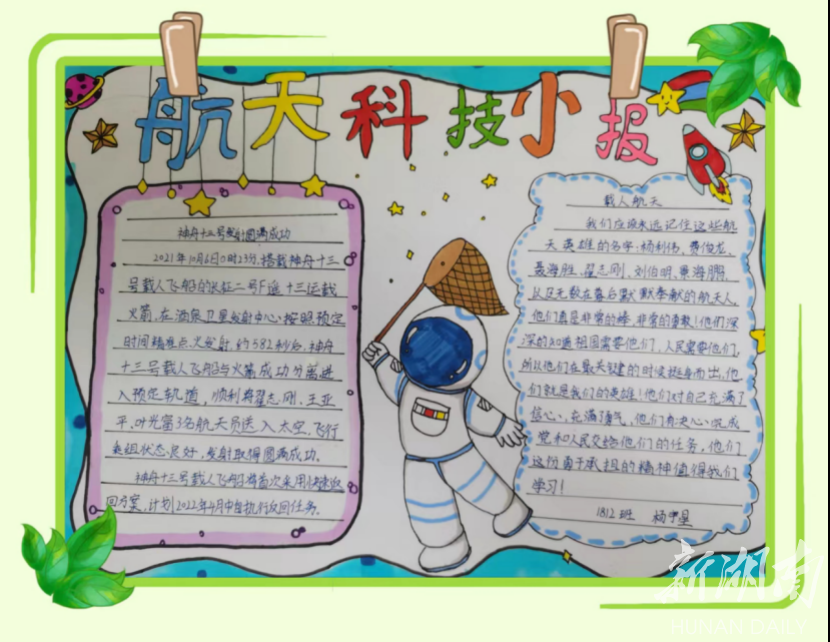 航天科技小报
神舟十三号发射圆满成功
2021年10月16日0时23分,搭载神舟十三
号载人飞船的长征二号F遥十三运载
火箭,在酒泉卫星发射中心按照预定
时间精准点火发射,约582秒后,神舟
十三号载人飞船与火箭成功分离进
入预定轨道,顺利将翟志刚、王亚
平、叶光富3名航天员送入太空,飞行
乘组状态良好,发射取得圆满成功。
神舟十三号载人飞船将首次采用快速返
回方案,计划2022年4月中旬执行返回任务.
载人航天
我们应该永远记住这些航
天英雄的名字:杨利伟,费俊龙,
聂海胜,翟志刚,刘伯明,景海鹏,
以及无数在幕后默默奉献的航天人,
他们真是非常的棒,非常的勇敢!他们深
深的知道祖国需要他们,人民需要他们,
所以他们在最关键的时候挺身而出,他
们就是我们的英雄!他们对自己充满了
信心,充满了勇气,他们有决心完成
党和人民交给他们的任务,他们
这份勇于承担的精神值得我们
学习!
1812班 杨
新湖南
HUNAN DAILY